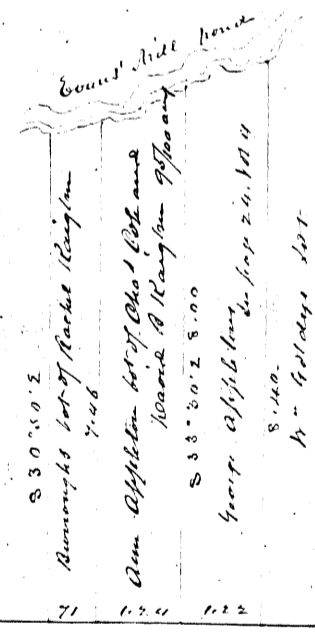 Evans' Mill pond
S 30° 50' E
Burroughs lot of Rachel Kaighn
7.46
Ann Appleton lot of Chas Cope and
David B Kaighn 95/100 any
S 33° 30' E 8.00
George Appleton
see page 24. lot 4
8.40
Wm Goldys lot
71
1.22